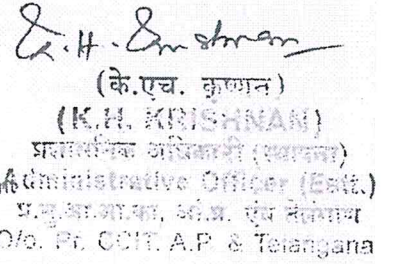 K.H. Krishnan
(के.एच. कृष्णन)
(K.H. KRISHNAN)
प्रशासनिक अधिकारी (स्थापना)
Administrative Officer (Estt.)
प्र.मु.आ.आ.का, आं.प्र. एंव तेलंगाणा
O/o. Pr. CCIT. A.P. & Telangana